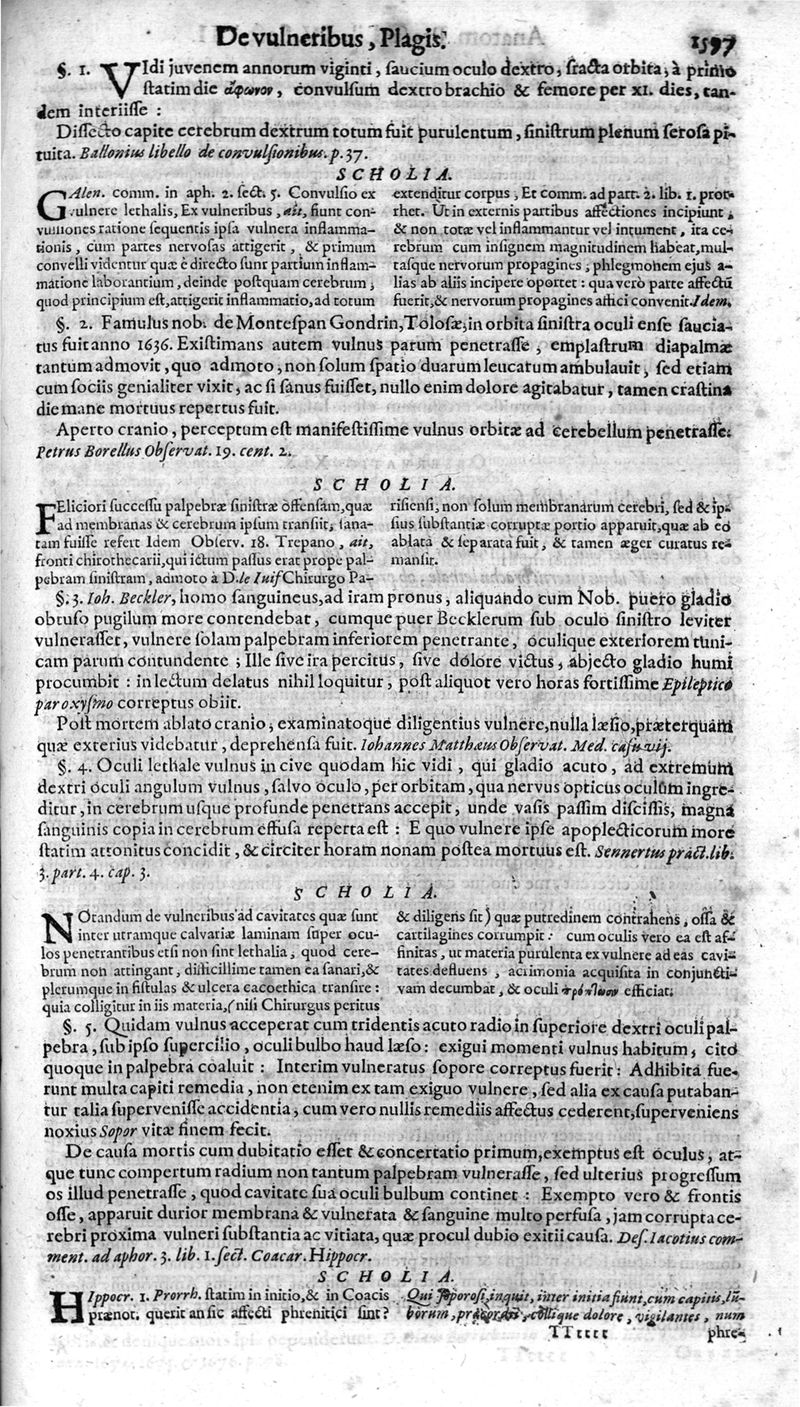 De vulneribus, Plagis.
1597
§. 1. VIdi juvenem annorum viginti, saucium oculo dextro, fracta orbita; à primo
statim die ἄφωνον, convulsum dextro brachio & femore per xi. dies, tan-
dem interiisse :
Dissecto capite cerebrum dextrum totum fuit purulentum, sinistrum plenum serosa pi-
tuita. Ballonius libello de convulsionibus. p. 37.
SCHOLIA.
GAlen. comm. in aph. 2. sect. 5. Convulsio ex
vulnere lethalis, Ex vulneribus, ait, fiunt con-
vulsiones ratione sequentis ipsa vulnera inflamma-
tionis, cum partes nervosas attigerit, & primum
convelli videntur quæ è directo sunt partium inflam-
matione laborantium, deinde postquam cerebrum,
quod principium est, attigerit inflammatio, ad totum
extenditur corpus, Et comm. ad part. 2. lib. 1. pror-
rhet. Ut in externis partibus affectiones incipiunt,
& non totæ vel inflammantur vel intument, ita ce-
rebrum cum insignem magnitudinem habeat, mul-
tasque nervorum propagines, phlegmonem ejus a-
lias ab aliis incipere oportet : qua verò parte affectũ
fuerit, & nervorum propagines affici convenit. Idem.
§. 2. Famulus nob. de Montespan Gondrin, Tolosæ, in orbita sinistra oculi ense saucia-
tus fuit anno 1636. Existimans autem vulnus parum penetrasse, emplastrum diapalmæ
tantum admovit, quo admoto, non solum spatio duarum leucarum ambulavit, sed etiam
cum sociis genialiter vixit, ac si sanus fuisset, nullo enim dolore agitabatur, tamen crastina
die mane mortuus repertus fuit.
Aperto cranio, perceptum est manifestissime vulnus orbitæ ad cerebellum penetrasse.
Petrus Borellus Observat. 19. cent. 2.
SCHOLIA.
FEliciori successu palpebræ sinistræ offensam, quæ
ad membranas & cerebrum ipsum transiit, sana-
tam fuisse refert Idem Observ. 18. Trepano, ait,
fronti chirothecarii, qui ictum passus erat prope pal-
pebram sinistram, admoto à D. le Iuif Chirurgo Pa-
risiensi, non solum membranarum cerebri, sed & ip-
sius substantiæ corruptæ portio apparuit, quæ ab eo
ablata & separata fuit, & tamen æger curatus re-
mansit.
§. 3. Ioh. Beckler, homo sanguineus, ad iram pronus, aliquando cum Nob. puero gladio
obtuso pugilum more contendebat, cumque puer Becklerum sub oculo sinistro leviter
vulnerasset, vulnere solam palpebram inferiorem penetrante, oculique exteriorem tuni-
cam parum contundente ; Ille sive ira percitus, sive dolore victus, abjecto gladio humi
procumbit : in lectum delatus nihil loquitur, post aliquot vero horas fortissime Epileptico
paroxysmo correptus obiit.
Post mortem ablato cranio, examinatoque diligentius vulnere, nulla læsio, præterquam
quæ exterius videbatur, deprehensa fuit. Iohannes Matthæus Observat. Med. casu vij.
§. 4. Oculi lethale vulnus in cive quodam hic vidi, qui gladio acuto, ad extremum
dextri oculi angulum vulnus, salvo oculo, per orbitam, qua nervus opticus oculum ingre-
ditur, in cerebrum usque profunde penetrans accepit, unde vasis passim discissis, magna
sanguinis copia in cerebrum effusa reperta est : E quo vulnere ipse apoplecticorum more
statim attonitus concidit, & circiter horam nonam postea mortuus est. Sennertus pract. lib.
3. part. 4. cap. 3.
SCHOLIA.
NOtandum de vulneribus ad cavitates quæ sunt
inter utramque calvariæ laminam super ocu-
los penetrantibus etsi non sint lethalia, quod cere-
brum non attingant, difficillime tamen ea sanari, &
plerumque in fistulas & ulcera cacoethica transire :
quia colligitur in iis materia, (nisi Chirurgus peritus
& diligens sit) quæ putredinem contrahens, ossa &
cartilagines corrumpit : cum oculis vero ea est af-
finitas, ut materia purulenta ex vulnere ad eas cavi-
tates defluens, acrimonia acquisita in conjuncti-
vam decumbat, & oculi efficiat.
§. 5. Quidam vulnus acceperat cum tridentis acuto radio in superiore dextri oculi pal-
pebra, sub ipso supercilio, oculi bulbo haud læso : exigui momenti vulnus habitum, cito
quoque in palpebra coaluit : Interim vulneratus sopore correptus fuerit : Adhibita fue-
runt multa capiti remedia, non etenim ex tam exiguo vulnere, sed alia ex causa putaban-
tur talia supervenisse accidentia, cum vero nullis remediis affectus cederent, superveniens
noxius Sopor vitæ finem fecit.
De causa mortis cum dubitatio esset & concertatio primum, exemptus est oculus, at-
que tunc compertum radium non tantum palpebram vulnerasse, sed ulterius progressum
os illud penetrasse, quod cavitate sua oculi bulbum continet : Exempto vero & frontis
osse, apparuit durior membrana & vulnerata & sanguine multo perfusa, jam corrupta ce-
rebri proxima vulneri substantia ac vitiata, quæ procul dubio exitii causa. Des. Iacotius com-
ment. ad aphor. 3. lib. 1. sect. Coacar. Hippocr.
SCHOLIA.
HIppocr. 1. Prorrh. statim in initio, & in Coacis
prænot. querit an sic affecti phrenitici sint?
Qui soporosi, inquit, inter initia fiunt, cum capitis, lũ-
borum, collique dolore, vigilantes, num
TTtttt
phre-